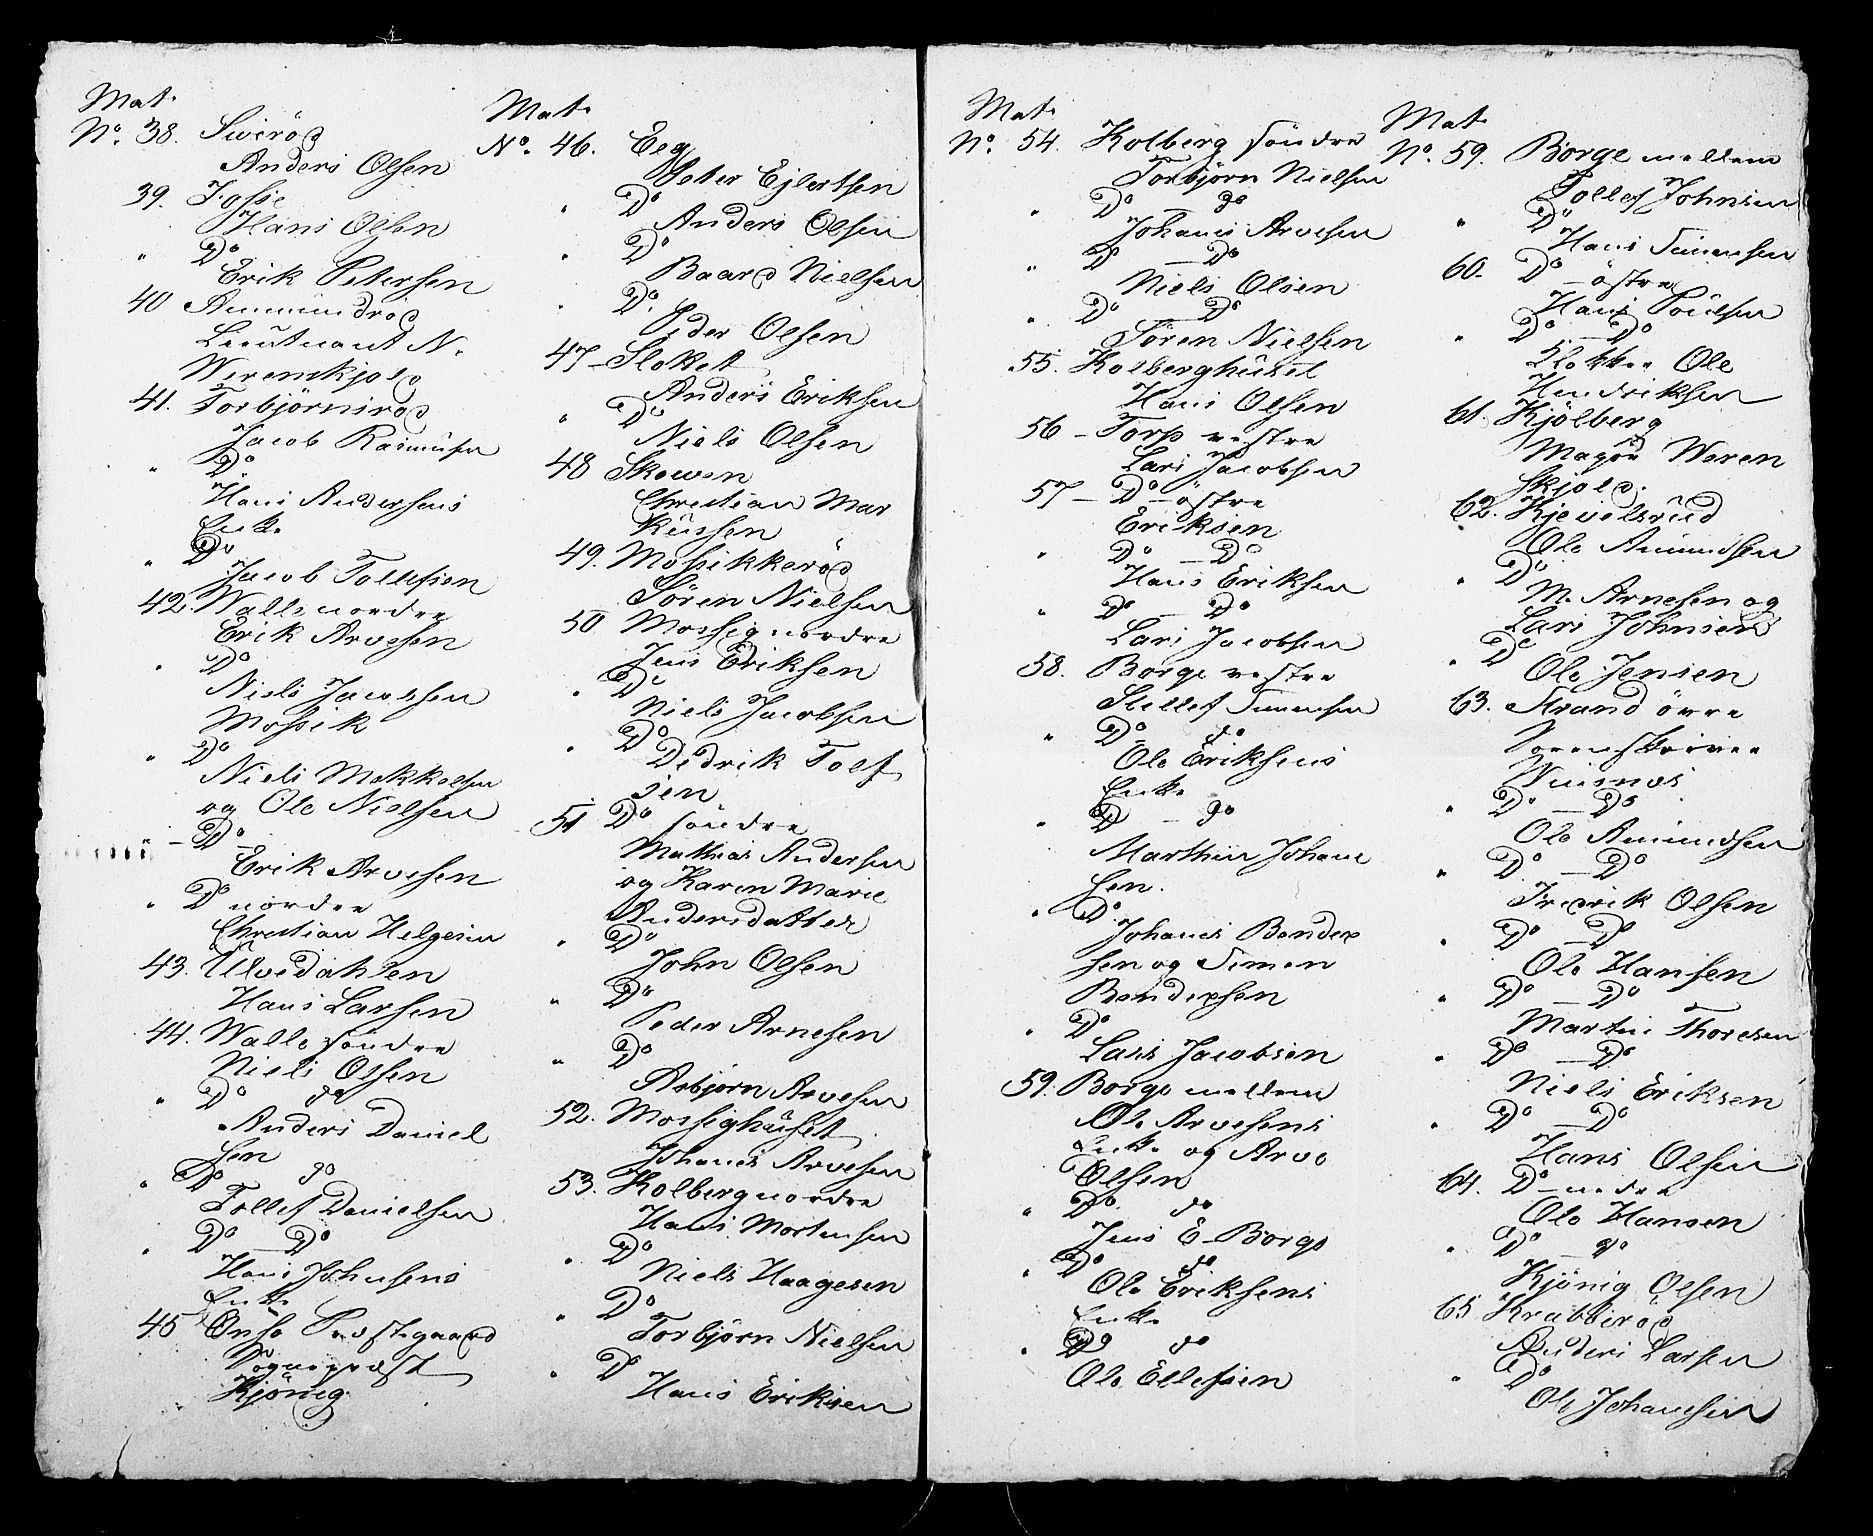 Mat.
No. 38. Sweröd
Anders Olsen
39. Fosse
Hans Olsen
" Do
Erik Petersen
40 Ammundrød
Lieutnant N.
Werenskjold
41. Torbjörnsröd
Jacob Rasmusen
" Do
Hans Andersens
Enke
" Do
Jacob Tollefsen
42. Walle nordre
Erik Arvesen
" Do
Niels Jacobsen
Mossik
" Do
Niels Mekkelsen
og Ole Nielsen
" Do
Erik Arvesen
" Do nordre
Christian Helgesen
43. Ulvedahlen
Hans Larsen
44. Walle söndre
Niels Olsen
" Do do
Anders Daniel
sen
" Do do
Tollef Danielsen
" Do — Do
Hans Johnsens
Enke
45 Onsø Præstegaard
Sognepræst
Kjönig
Mat.
No. 46. Eeg
Peter Ejlertsen
" Do
Anders Olsen
" Do
Baard Nielsen
" Do
Peder Olsen
47 – Sloket
Anders Eriksen
" Do
Niels Olsen
48 Skowen
Christian Mar
kussen
49. Mossikkeröd
Sören Nielsen
50 Mossig nordre
Jens Eriksen
" Do
Niels Jacobsen
" Do
Didrik Tolf
sen
51 Do söndre
Mathias Andersen
og Karen Marie
Andersdatter
" Do
John Olsen
" Do
Peder Arnesen
" Do
Asbjørn Arvesen
52. Mossighuset
Johanes Arvesen
53. Kolberg nordre
Hans Mortensen
" Do
Niels Haagesen
" Do
Torbjörn Nielsen
" Do
Hans Eriksen
Mat.
No. 54. Kolberg söndre
Torbjörn Nielsen
" Do — do
Johanes Arvesen
" Do — Do
Niels Olsen
" Do — Do
Sören Nielsen
55. Kolberghuset
Hans Olsen
56 – Torp vestre
Lars Jacobsen
57 – Do – östre
Eriksen
" Do — Do
Hans Eriksen
" Do — Do
Lars Jacobsen
58. Borge vestre
Stillef Simensen
" Do do
Ole Eriksens
Enke
" Do — do
Marthin Johane
sen.
" Do
Johanes Bendix
sen og Simen
Bendixsen
" Do
Lars Jacobsen
59. Borge mellem
Ole Arvesens
Enke og Arve
Olsen
" Do. do
Jens E. Borge
" Do do
Ole Eriksens
Enke
" Do do
Ole Ellefsen
Mat.
No. 59. Borge mellem
Tollef Johnsen
" Do
Hans Simensen
60. Do – östre
Hans Poulsen
" Do — Do
Klokker Ole
Hendriksen
61. Kjölberg
Major Weren
skjold.
62. Kjevelsrud
Ole Amundsen
" Do
M. Arnesen og
Lars Johnsen
" Do
Ole Jensen
63. Strand övre
Sorenskriver
" Do — Do
Ole Amundsen
" Do — Do
Fredrik Olsen
" Do — Do
Ole Hansen
" Do — Do
Martin Thoresen
" Do — Do
Niels Eriksen
" Do — Do
Hans Olsen
64. Do – nedre
Ole Hansen
" Do — do
Kjönig Olsen
65 Krabberöd
Anders Larsen
" Do
Ole Johanesen